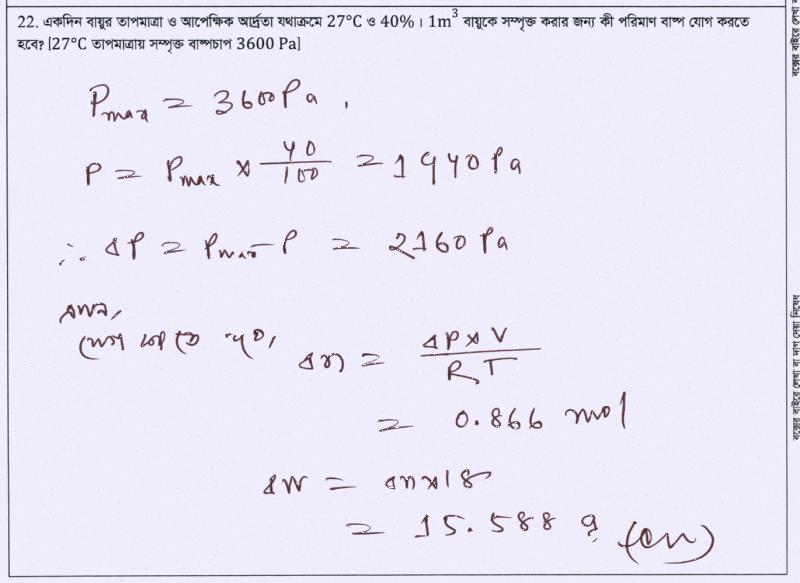 22. একদিন বায়ুর তাপমাত্রা ও আপেক্ষিক আর্দ্রতা যথাক্রমে 27°C ও 40% । 1m³ বায়ুকে সম্পৃক্ত করার জন্য কী পরিমাণ বাষ্প যোগ করতে
হবে? [27°C তাপমাত্রায় সম্পৃক্ত বাষ্পচাপ 3600 Pa]
P_max = 3600 Pa,
P = P_max × 40/100 = 1440 Pa
∴ ΔP = P_max - P = 2160 Pa
এখন,
Δn = ΔP×V/RT
= 0.866 mol
ΔW = Δn×18
= 15.588 g (Ans)
বক্সের বাইরে লেখা বা দাগ দেয়া নিষেধ